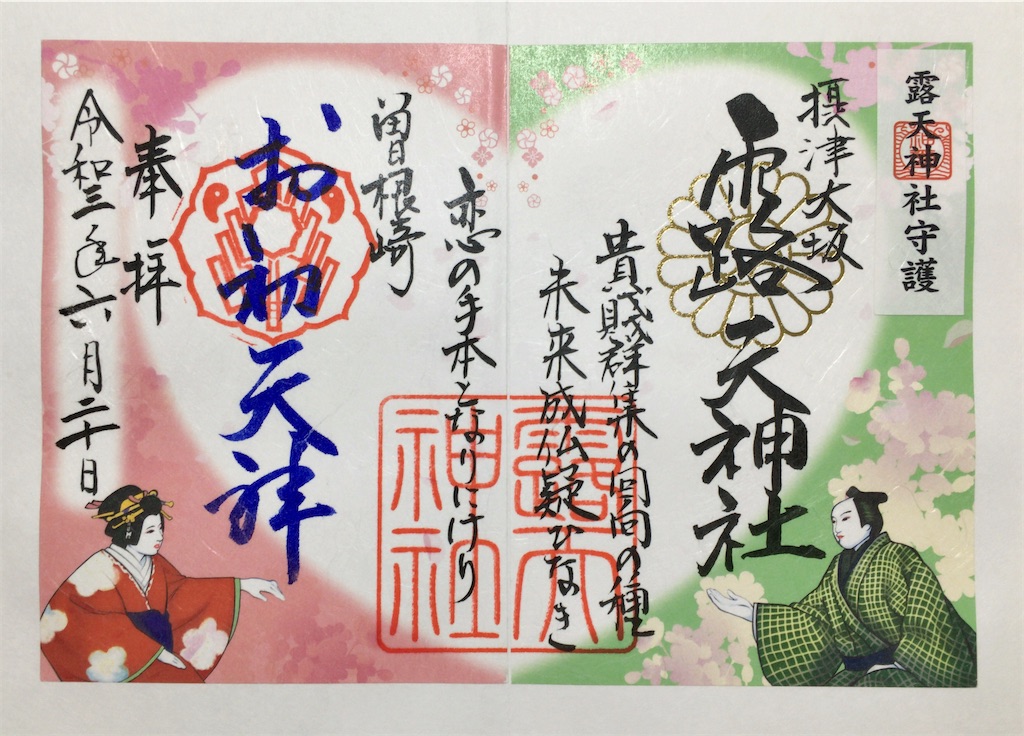 露天神社守護
摂津大坂
露天神社
貴賤群集の回向の種
未来成仏疑ひなき
露天神社
恋の手本となりにけり
曽根崎
お初天神
奉拝
令和三年六月二十日